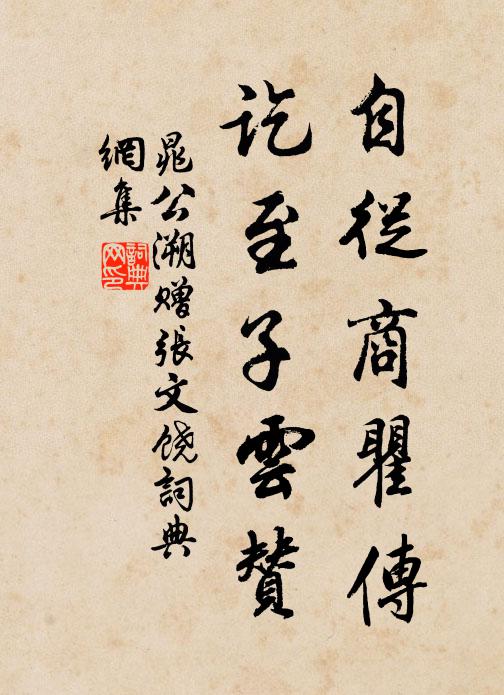 自從商瞿傳
訖至子雲贊
晁公溯贈張文饒詞典
網集
詞典網印